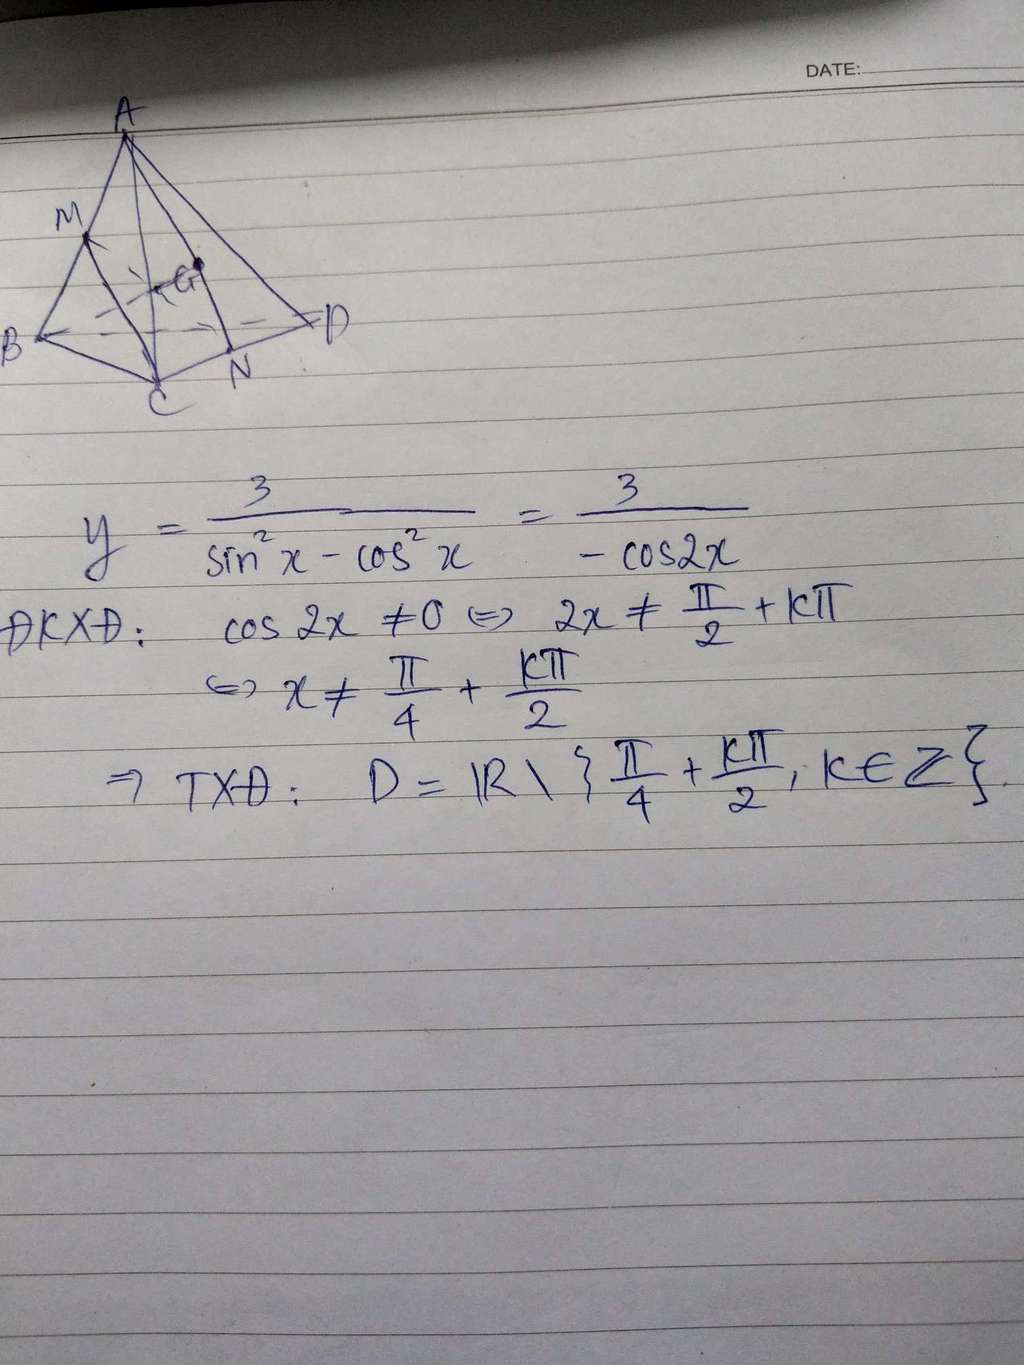 DATE:
A
M
G
B
D
N
C
y = 3/(sin²x - cos²x) = 3/(-cos2x)
ĐKXĐ: cos 2x ≠ 0 <=> 2x ≠ π/2 + kπ
<=> x ≠ π/4 + kπ/2
=> TXĐ: D = |R \ { π/4 + kπ/2, k ∈ Z }